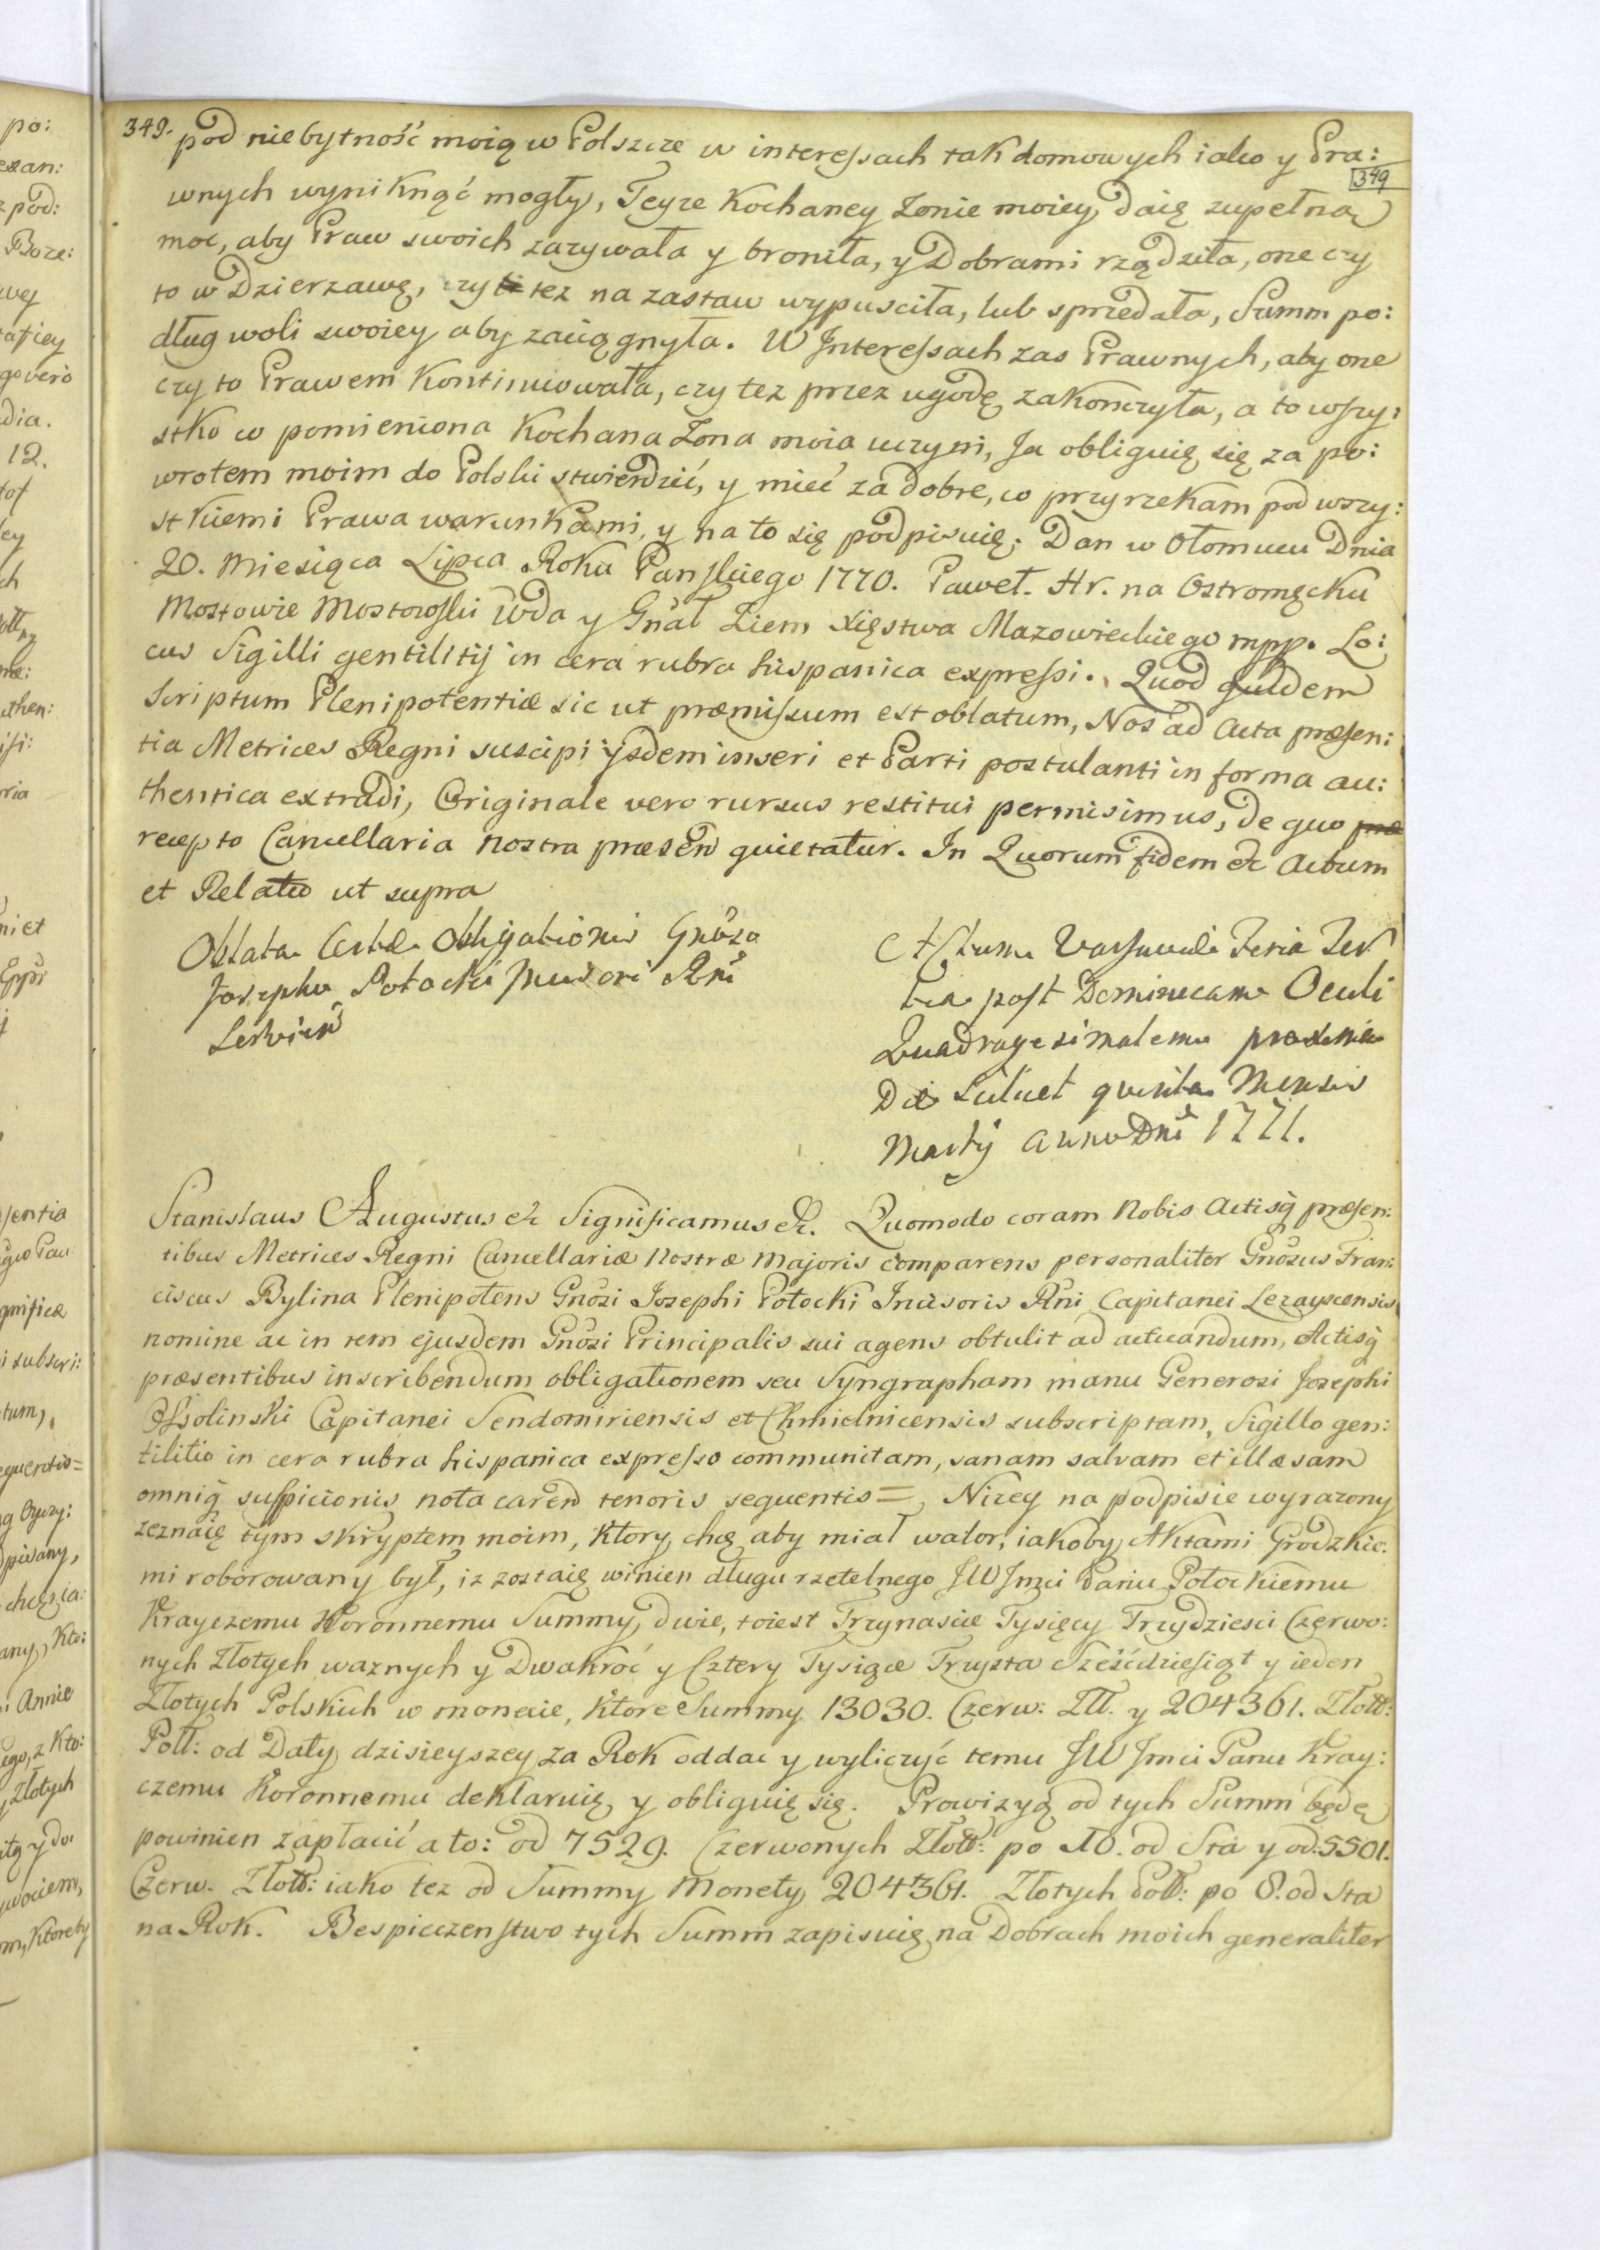 349.
pod niebytność moią w Polszcze w interessach tak domowych iako y Pra:
349
wnych wyniknąć mogły, Teyze Kochaney Zonie moiey daię zupełną
moc, aby Praw swoich zazywała y broniła, y Dobrami rządziła, one czy
to w Dzierzawę, czy tez na zastaw wypusciła, lub sprzedała, Summ po:
dług woli swoiey aby zaciągnyła. W Interessach zas Prawnych, aby one
czy to Prawem Kontinuowała, czy tez przez ugodę zakonczyła, a to wszy:
stko co pomieniona Kochana Zona moia uczyni, Ja obliguię się za po:
wrotem moim do Polski stwierdzić, y mieć za dobre, co przyrzekam pod wszy:
stkiemi Prawa warunkami, y na to się podpisuię; Dan w Ołomucu Dnia
20. Miesiąca Lipca Roku Panskiego 1770. Paweł. Hr. na Ostromęcku
Mostowie Mostowski Wda y Gnał Ziem Xięstwa Mazowieckiego mpp. Lo:
cus Sigilli gentilitij in cera rubra hispanica expressi. Quod quidem
Scriptum Plenipotentiæ sic ut præmissum est oblatum, Nos ad Acta præsen:
tia Metrices Regni suscipi ijsdem inseri et Parti postulanti in forma au:
thentica extradi, Originale vero rursus restitui permisimus, de quo
recepto Cancellaria nostra præsen quietatur. In Quorum fidem & Actum
et Relatio ut supra
Oblata Certæ Obligationis Gnoso
Josepho Potocki Incisori Rni
Servien
Actum Varsaviæ Feria Ter
tia post Dominicam Oculi
Quadragesimalem proxima
Die Scilicet quinta Mensis
Martij Anno Dni 1771.
Stanislaus Augustus & Significamus &. Quomodo coram Nobis Actisq præsen:
tibus Metrices Regni Cancellariæ Nostræ Majoris comparens personaliter Gnosus Fran:
ciscus Bylina Plenipotens Gnosi Josephi Potocki Incisoris Rni Capitanei Lezayscensis
nomine ac in rem ejusdem Gnosi Principalis sui agens obtulit ad acticandum, Actisq
præsentibus inscribendum obligationem seu Syngrapham manu Generosi Josephi
Ossolinski Capitanei Sendomiriensis et Chmielnicensis subscriptam, Sigillo gen:
tilitio in cera rubra hispanica expresso communitam, sanam salvam et illæsam
omniq suspicionis nota caren tenoris sequentis = Nizey na podpisie wyrazony
zeznaię tym skryptem moim, ktory chcę aby miał walor, iakoby Aktami Grodzkie:
mi roborowany był, iz zostaię winien długu rzetelnego JWJmci Panu Potockiemu
Krayczemu Koronnemu Summy dwie, toiest Trzynascie Tysięcy Trzydziesci Czerwo:
nych Złotych waznych y Dwakroć y Cztery Tysiące Trzysta Sześćdziesiąt y ieden
Złotych Polskich w monecie, ktore Summy 13030. Czerw: Zll. y 204361. Złott:
Poll: od Daty dzisieyszey za Rok oddac y wyliczyć temu JW Jmci Panu Kray:
czemu Koronnemu deklaruię y obliguię się. Prowizyą od tych Summ będę
powinien zapłacić a to: od 7529. Czerwonych Złott: po 10. od Sta y od 5501.
Czerw. Złott: iako tez od Summy Monety 204361. Złotych Poll: po 8. od Sta
na Rok. Bespieczenstwo tych Summ zapisuię na Dobrach moich generaliter